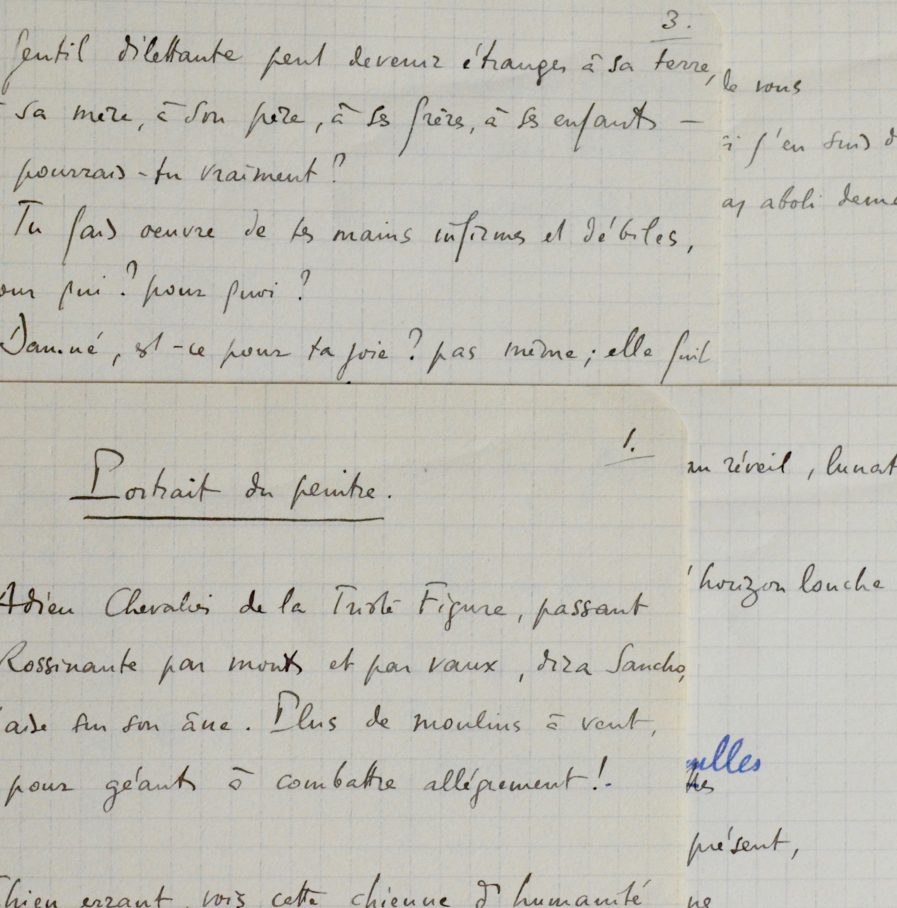 3.
Gentil dilettante peut devenir étranger à sa terre,
à sa mère, à son père, à ses frères, à ses enfants –
pourrais-tu vraiment ?
Tu fais oeuvre de tes mains infirmes et débiles,
our qui ? pour quoi ?
Damné, est-ce pour ta joie ? pas même ; elle fuit
le vous
si j'en suis d
as aboli dema
1.
Portrait du peintre.
Adieu Chevalier de la Triste Figure, passant
Rossinante par monts et par vaux, dira Sancho,
aise sur son âne. Plus de moulins à vent,
pour géants à combattre allégrement !.
hien errant, vois cette chienne d'humanité
au réveil, lunat
horizon louche
présent,
ne